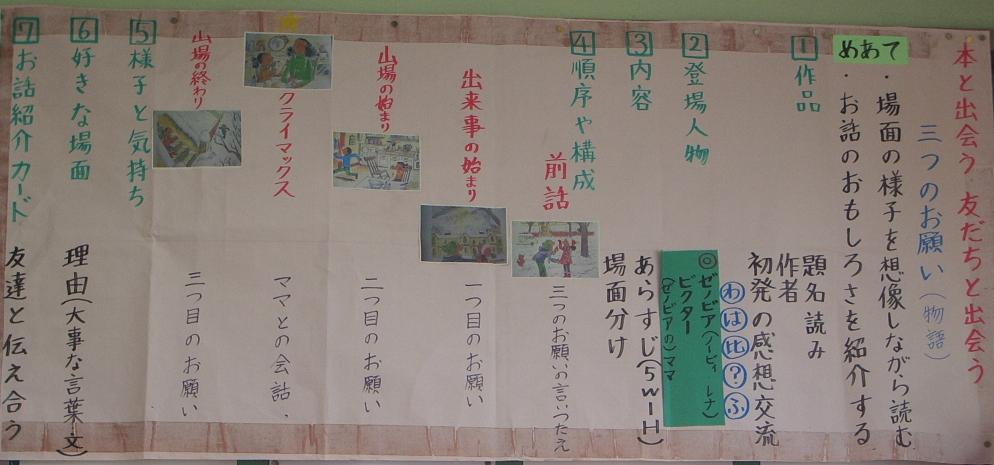 本と出会う 友だちと出会う
三つのお願い(物語)
めあて
・場面の様子を想像しながら読む
・お話のおもしろさを紹介する
1 作品
題名読み
作者
初発の感想交流
わ は 比 ? ふ
2 登場人物
◎ゼノビア(ノービィ レナ)
ビクター
(ゼノビアの)ママ
3 内容
あらすじ(5W1H)
場面分け
4 順序や構成
前話
三つのお願いの言いつたえ
出来事の始まり
一つ目のお願い
山場の始まり
二つ目のお願い
クライマックス
ママとの会話、
山場の終わり
三つ目のお願い
5 様子と気持ち
6 好きな場面
理由(大事な言葉・文)
7 お話紹介カード
友達と伝え合う